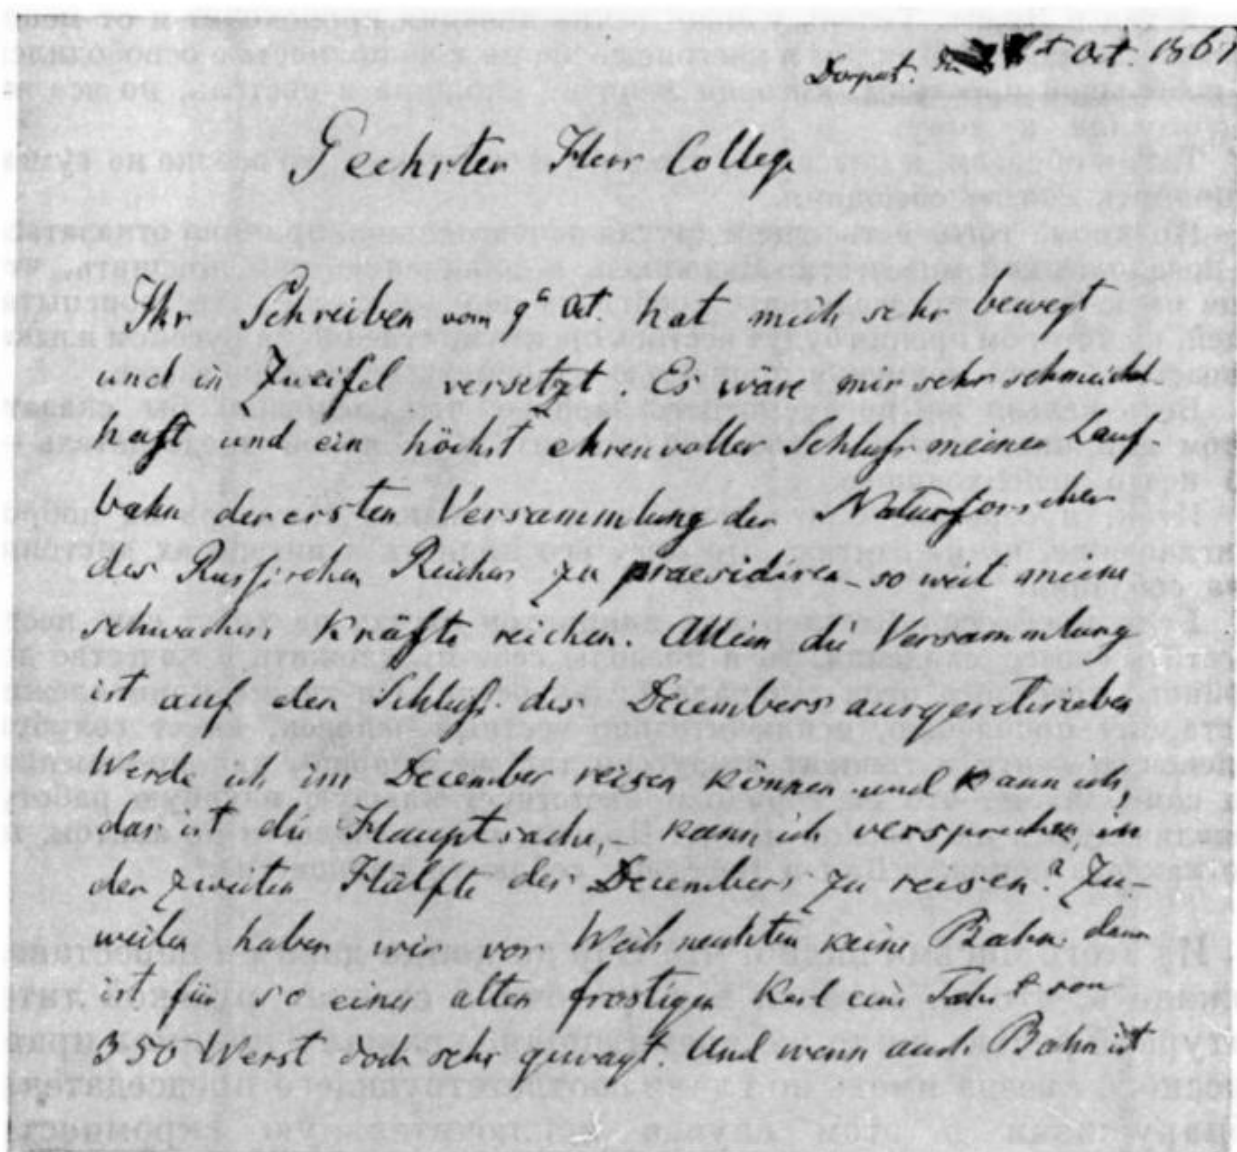 Dorpat. Oct. 1867
Geehrter Herr College
Ihr Schreiben vom 9n Oct. hat mich sehr bewegt
und in Zweifel versetzt. Es wäre mir sehr schmeichel-
haft und ein höchst ehrenvoller Schluß meiner Lauf-
bahn der ersten Versammlung der Naturforscher
des Russischen Reiches zu praesidiren – so weit meine
schwachen Kräfte reichen. Allein die Versammlung
ist auf den Schluß des Decembers ausgeschrieben
Werde ich im December reisen können und kann ich,
das ist die Hauptsache, – kann ich versprechen, in
der zweiten Hälfte des Decembers zu reisen? Zu-
weilen haben wir vor Weihnachten keine Bahn, dann
ist für so einen alten frostigen Kerl eine Fahrt von
350 Werst doch sehr gewagt. Und wenn auch Bahn ist